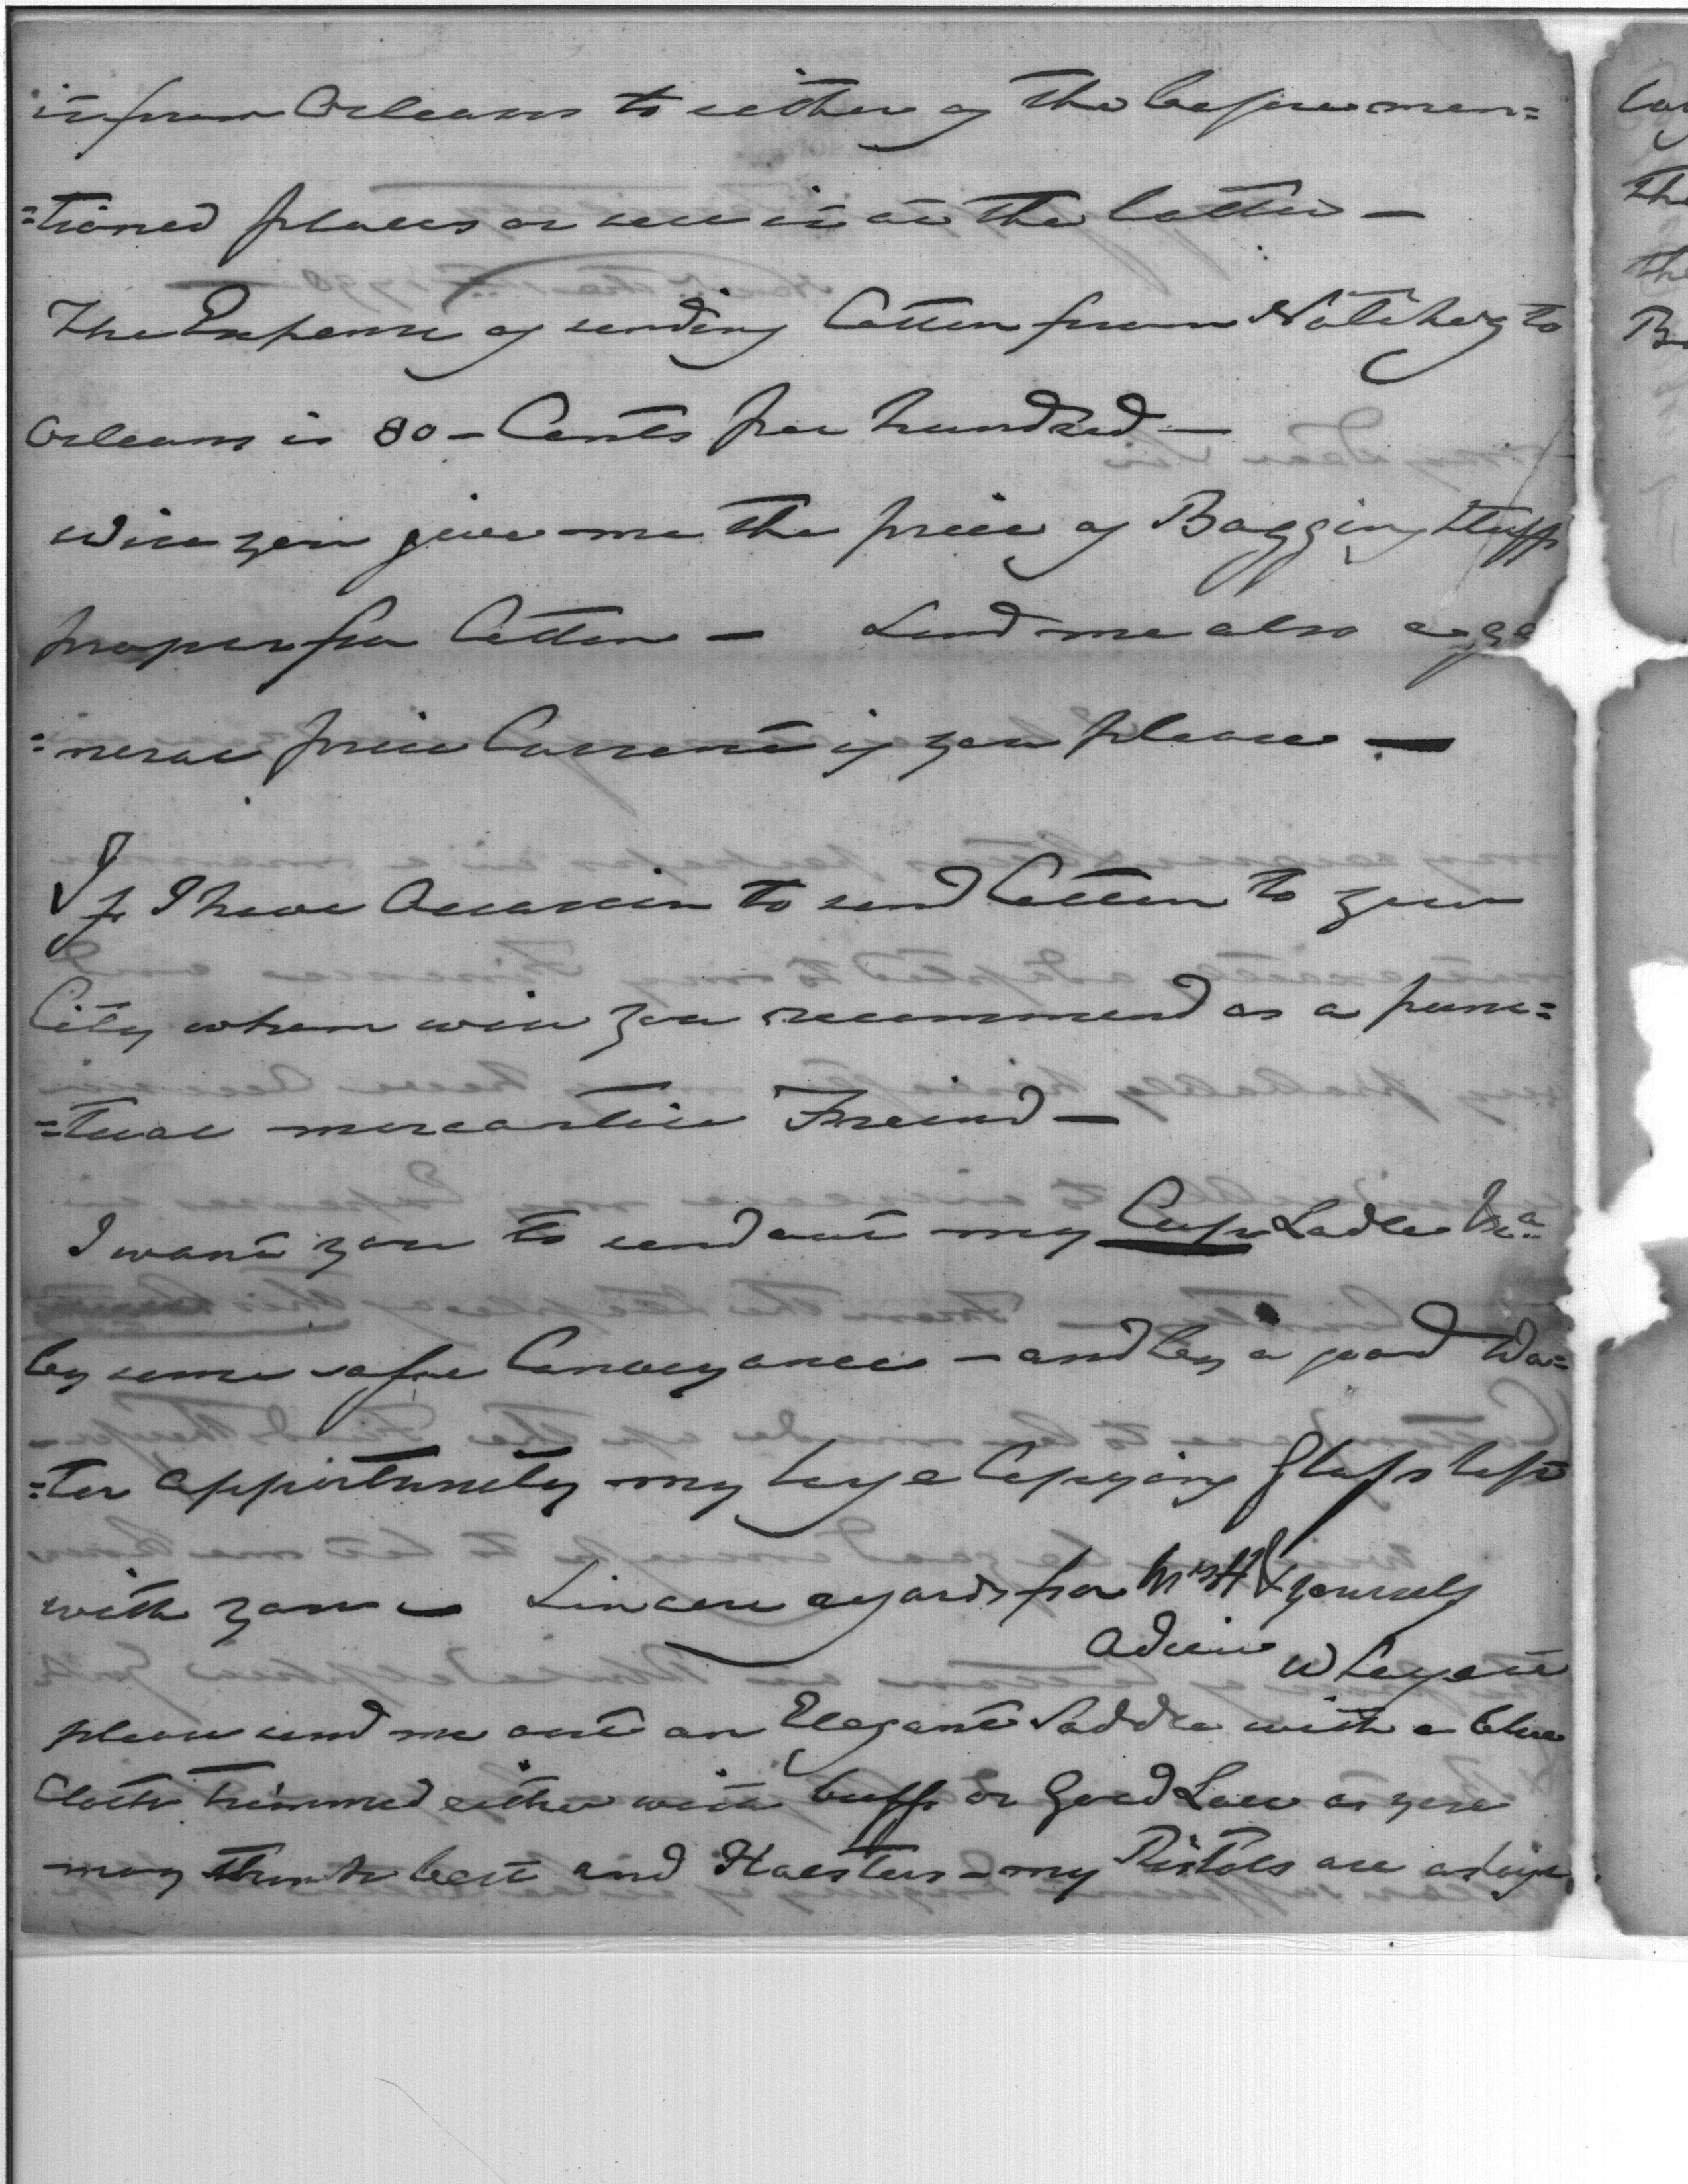 it from Orleans to either of the before men=
=tioned places or sell it at the latter —
The Expense of sending Cotton from Natchez to
Orleans is 80 – Cents per hundred —
Will you give me the price of Bagging stuff
proper for Cotton — Send me also a ge
=neral price Current if you please —
If I have Occasion to send Cotton to your
City whom will you recommend as a punc=
=tual mercantile Freind —
I want you to send out my Cup Ladle &ca
by some safe Conveyance – and by a good Wa=
=ter opportunity my large Copying Glass left
with you — Sincere regards for Mrs H & yourself
Adieu
please send me out an Elegant Saddle with a blue
Cloth trimmed either with buff or Gold Lace as you
may think best and Holsters – my Pistols are as large